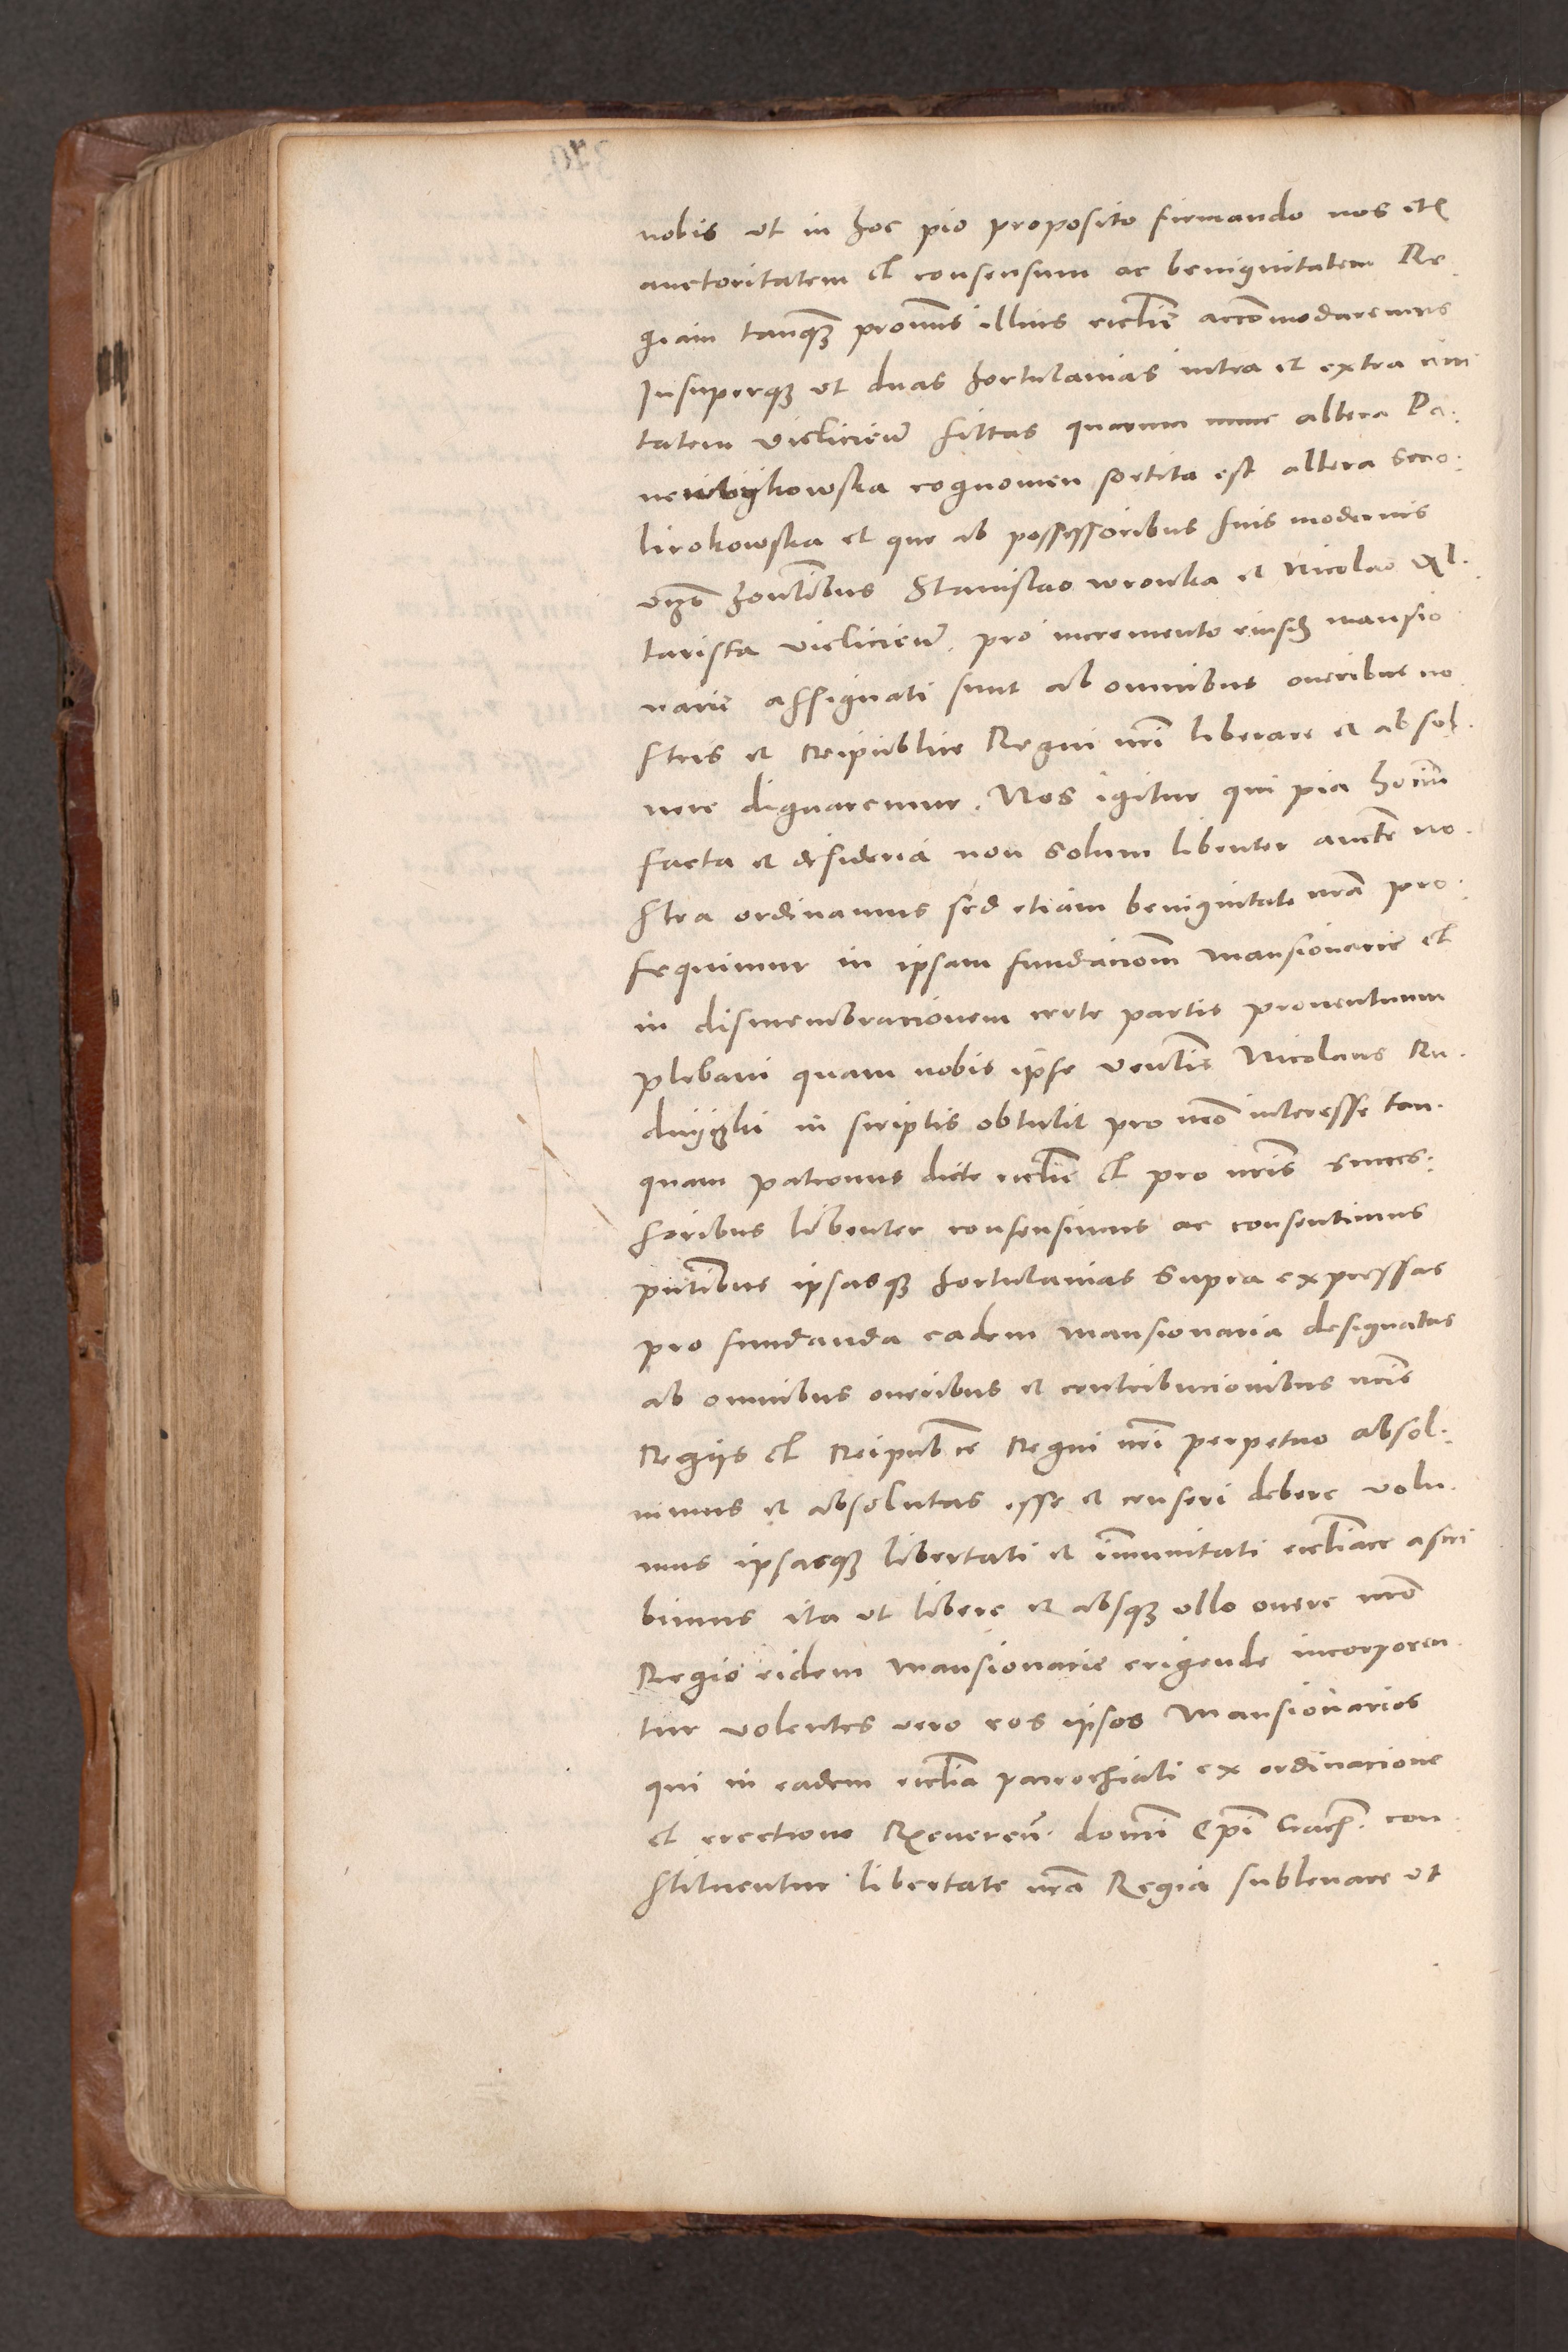 nobis ut in hoc pio proposito firmando nos etc
auctoritatem et consensum ac benignitatem Re
giam tanqz pronus illius ecclie accomodaremus
Insuperqz ut duas hortulanias intra et extra civi
tatem vielicien sittas quarum nunc altera Pa
cognomen sortita est altera
lirokowska et que ab possessoribus suis modernis
Stanislao wronka et Nicolao
tarista vielicien pro incremento eiusd mansio
narie assignati sunt ab omnibus oneribus no
stris et Reipublice Regni nri liberare et absol
vere dignaremur. Nos igitur qui pia hoim
facta et desideria non solum libenter aucte no
stra ordinamus sed etiam benignitate nra pro
sequimur in ipsam fundaciom mansionarie et
in dismembracionem certe partis proventuum
plebani quam nobis ipse Nicolaus Ru
in scriptis obtulit pro nro interesse tan
quam patronus dicte ecclie et pro nris succes
soribus libenter consensimus ac consentimus
pntibus ipsasqz hortulanias supra expressas
pro fundanda eadem mansionaria designatas
ab omnibus oneribus et contribucionibus nris
Regiis et Reipublice Regni nri perpetuo absol
vimus et absolutas esse et censeri debere volu
mus ipsasqz libertati et immunitati eccliace ascri
bimus ita ut libere et absqz ullo onere nro
Regio eidem mansionarie erigende incorporen
tur volentes vero eos ipsos Mansionarios
qui in eadem ecclia parrochiali ex ordinacione
et erectione Reveren. domi Epi Crach. con
stituentur libertate nra Regia sublevare ut